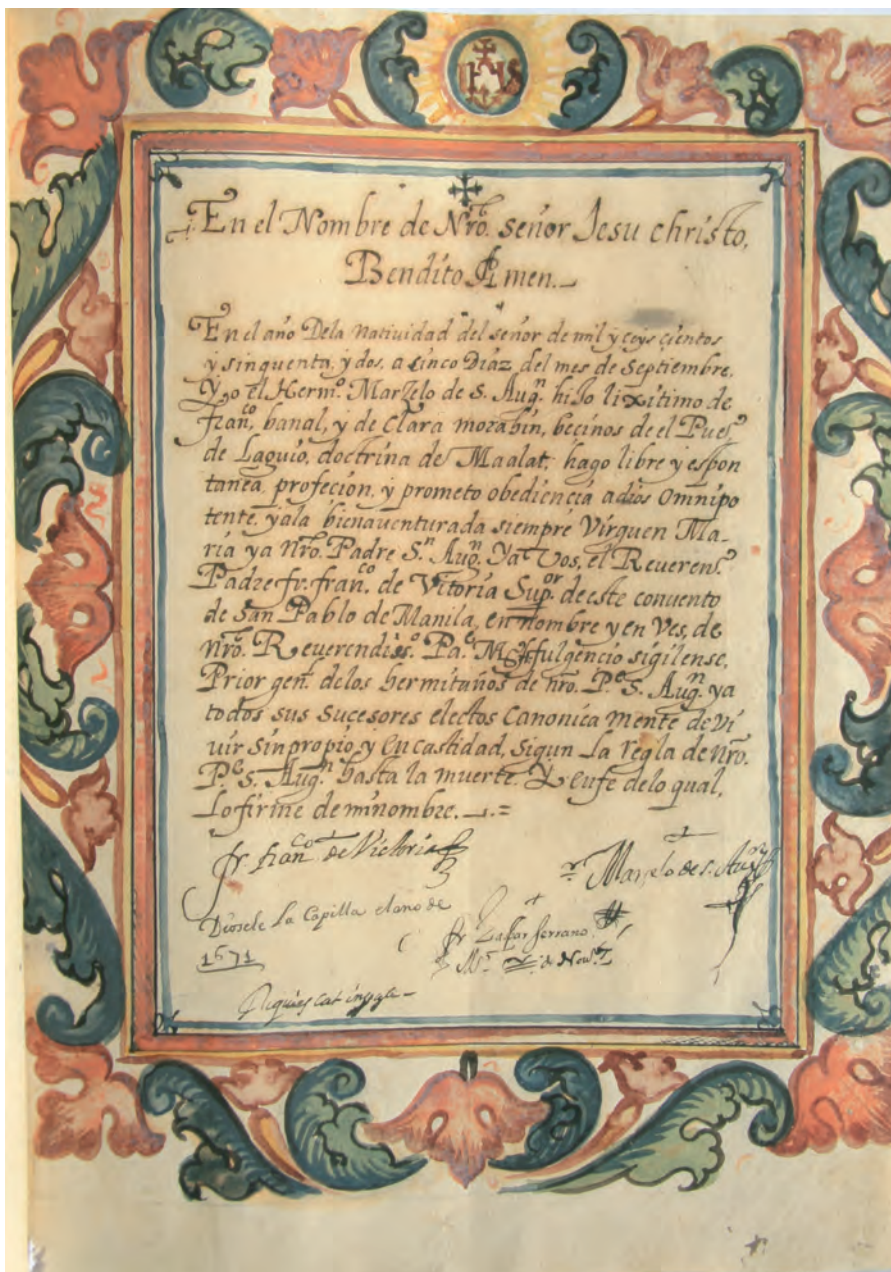 IHS
En el Nombre de Nro. señor Jesu christo,
Bendito Amen.
En el año Dela natividad del señor de mil y ceys cientos
y sinquenta, y dos, a cinco Diaz del mes de septiembre,
Yo el Hermo. Marzelo de S. Augn. hijo lixitimo de
franco. banal, y de Clara morabin, becinos de el Pueo.
de Laguio, doctrina de Maalat; hago libre y espon
tanea, profecion, y prometo obediencia adios Omnipo
tente, yala bienauenturada siempre Virguen Ma-
ria ya Nro. Padre Sn. Augn. Ya Vos, el Reuerendo.
Padre fr. franco. de Vitoria Supor. de este conuento
de San Pablo de Manila, en nombre y en Ves, de
nro. Reuerendisso. Pae. fulgencio sigilense,
Prior genl. delos hermitaños de nro. Pe. S. Augn. ya
todos sus sucesores electos Canonica mente de vi
uir sin propio, y en castidad, sigun La regla de nro.
Pe. S. Augn. hasta la muerte. Y enfe delo qual,
Lo firme de mi nombre.
fr. franco. de Victoria
Marzelo de S. Augn.
Diosele La Capilla el ano de
1671
fr. serrano
Mo. de Nous.